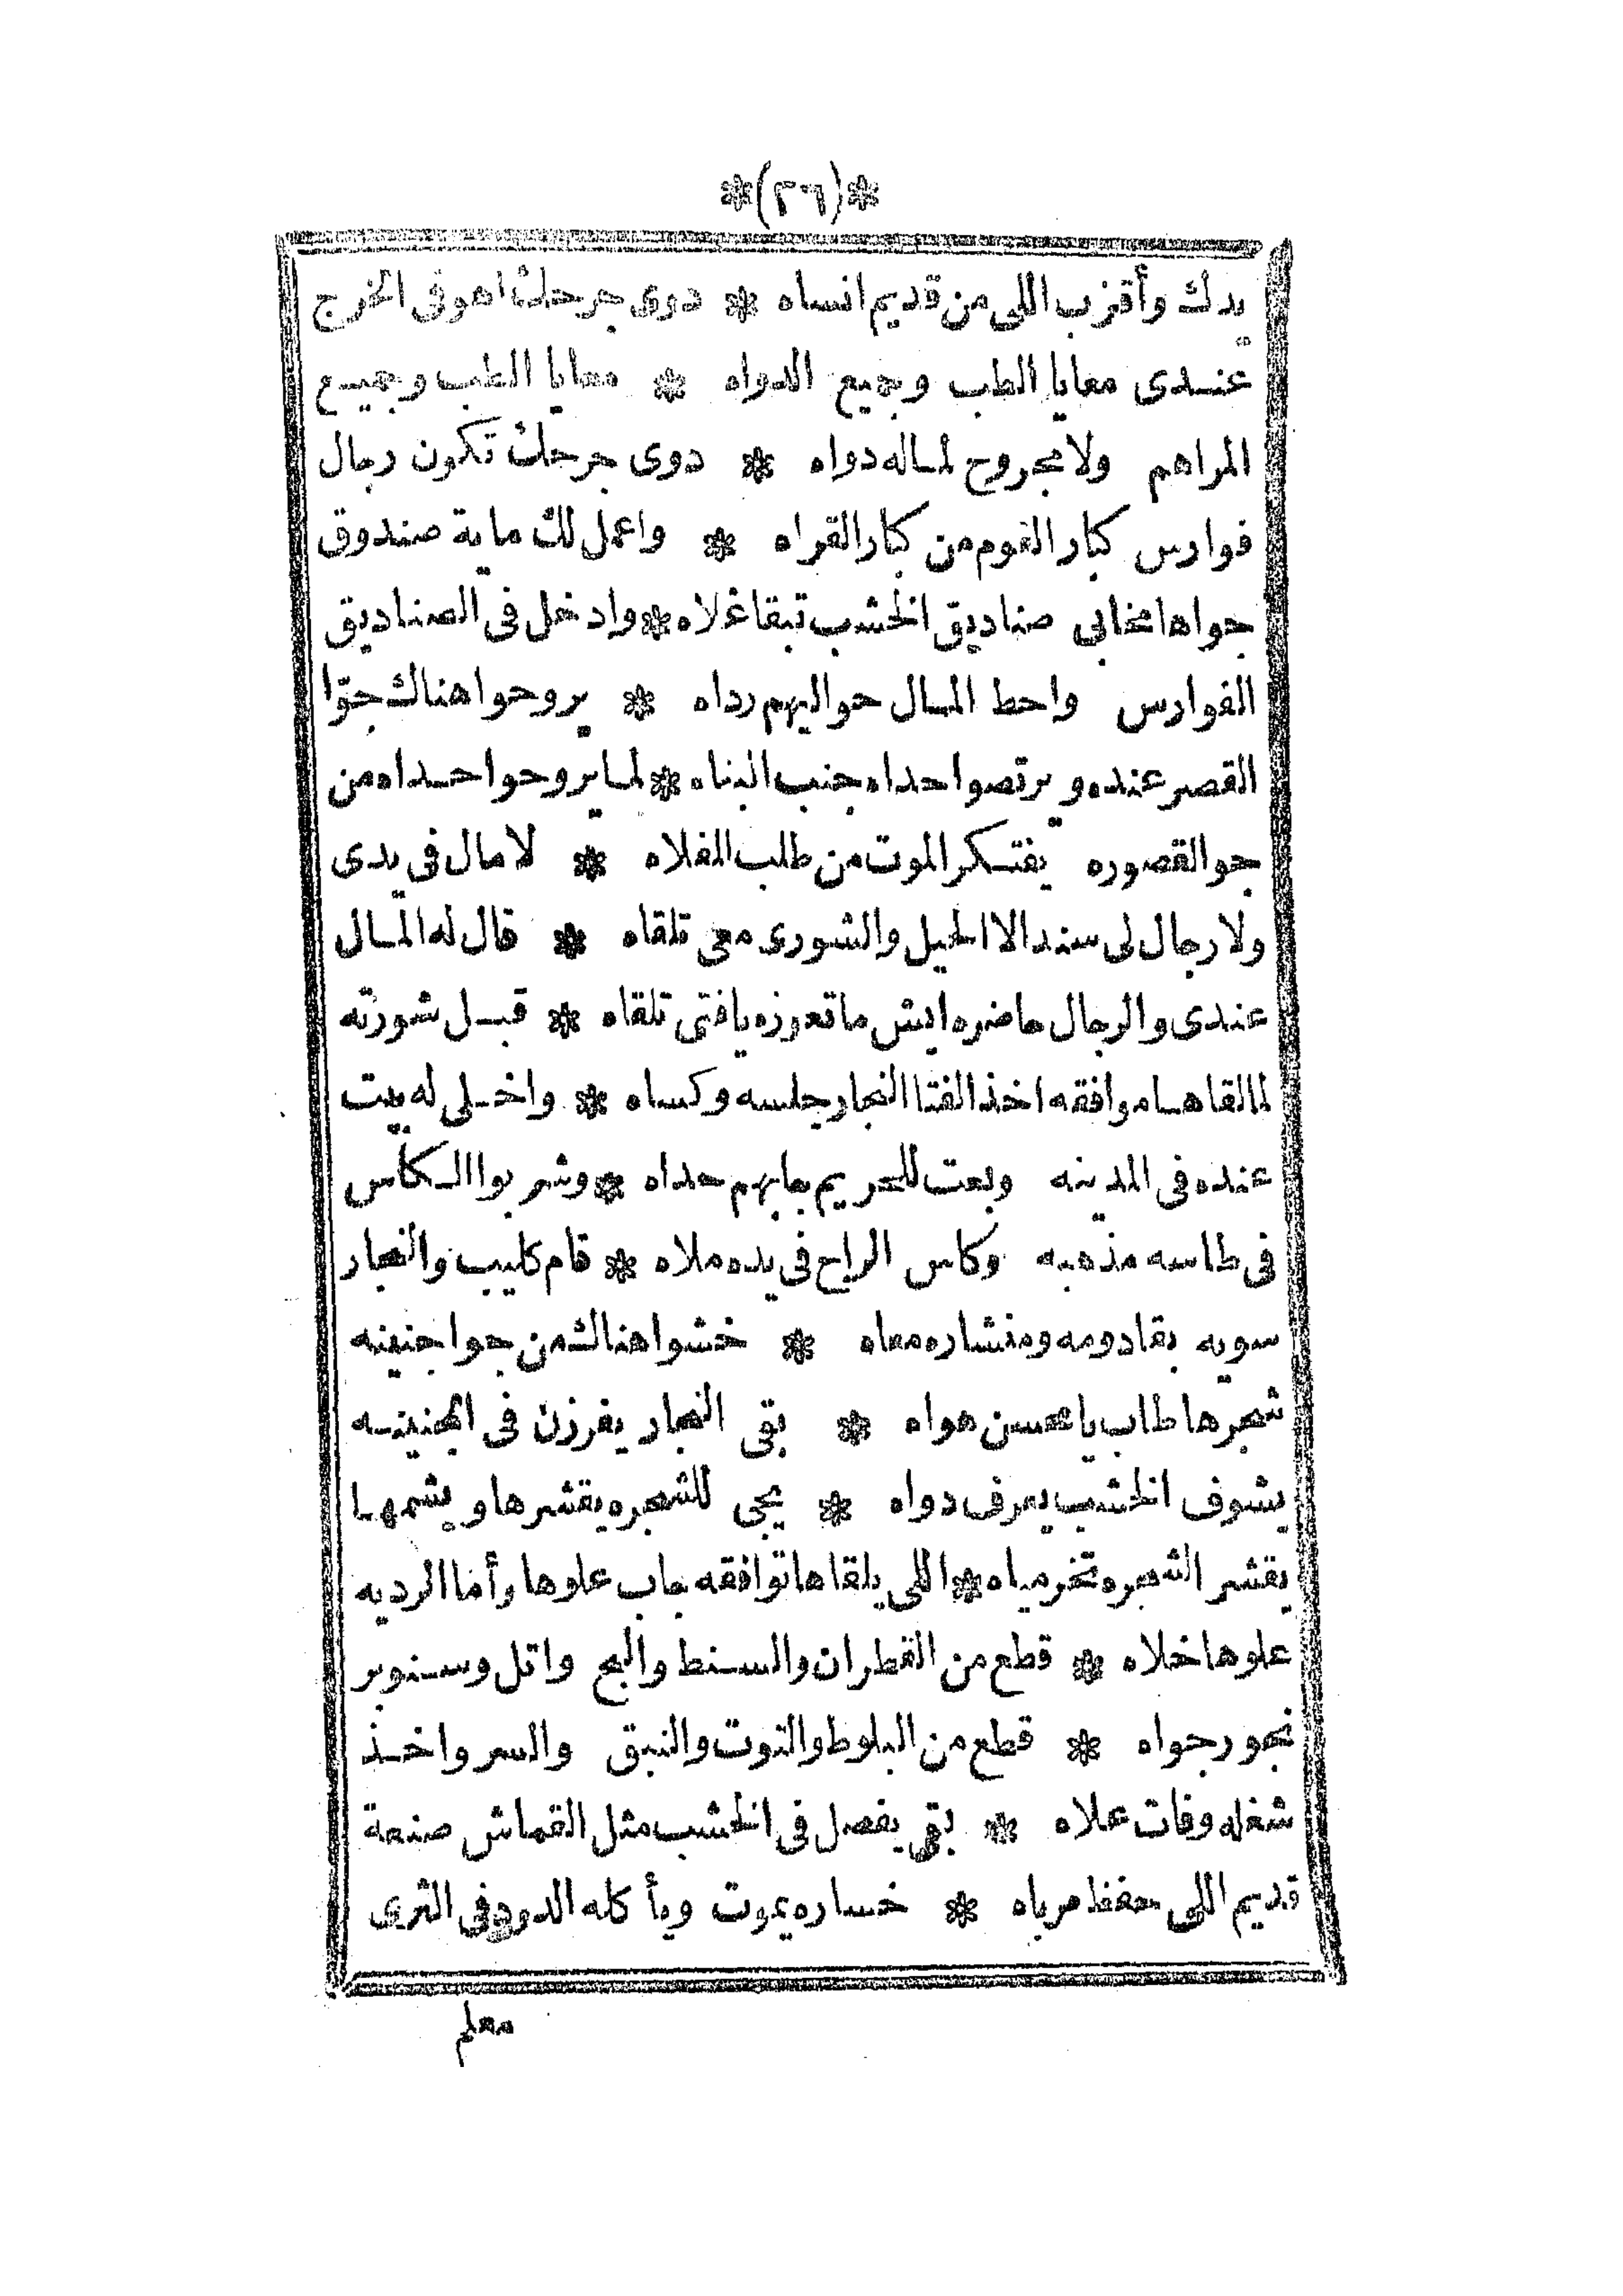 *(٢٦)*
يدك وأقزب اللى من قديم انساه * دوى جرحك اهو فى الخرج
عندى معايا الطب وجميع الدواه * معايا الطب وجميع
المراهم ولا مجروح لماله دواه * دوى جرحك تكون رجال
فوارس كبار القوم من كبار القراه * واعمل لك ماية صندوق
جواها مخابى صناديق الخشب تبقا غلاه * وادخل فى الصناديق
الفوارس واحط المال حواليهم رداه * يروحوا هناك جوّا
القصر عنده ويرتصوا حداه جنب البناه * لما يروحوا حداه من
جو القصوره يفتكر الموت من طلب الفلاه * لا مال فى يدى
ولا رجال لى سند الا الحيل والشورى معى تلقاه * قال له المال
عندى والرجال حاضره ايش ما تعوزه يا فتى تلقاه * قبل شورته
لما لقاها موافقه اخذ الفتا النجار جلسه وكساه * واخلى له بيت
عنده فى المدينه وبعت للحريم جابهم حداه * وشربوا الكأس
فى طاسه مذهبه وكاس الراح فى يده ملاه * قام كليب والنجار
سويه بقادومه ومنشاره معاه * خشوا هناك من جوا جنينه
شجرها طاب يا محسن هواه * بقى النجار يفرزن فى الجنينه
يشوف الخشب يعرف دواه * يجى للشجره يقشرها ويشمها
يقشر الشجره تخر مياه * اللى يلقاها توافقه جاب علوها وأما الرديه
علوها خلاه * قطع من القطران والسنط والبج واتل وسنوبر
نجور جواه * قطع من البلوط والتوت والنبق والسر واخذ
شغله وفات علاه * بقى يفصل فى الخشب مثل القماش صنعة
قديم اللى حفظ مرباه * خساره يموت ويأكله الدود فى الثرى
معلم